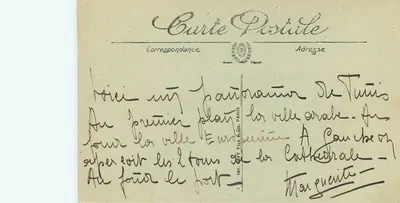 Carte Postale
Correspondance
Adresse
Voici un panorama de Tunis
Au premier plan la ville arabe. Au
fond la ville Européenne A Gauche on
aperçoit les 2 tours de la Cathédrale.
Au fond le port.
Marguerite